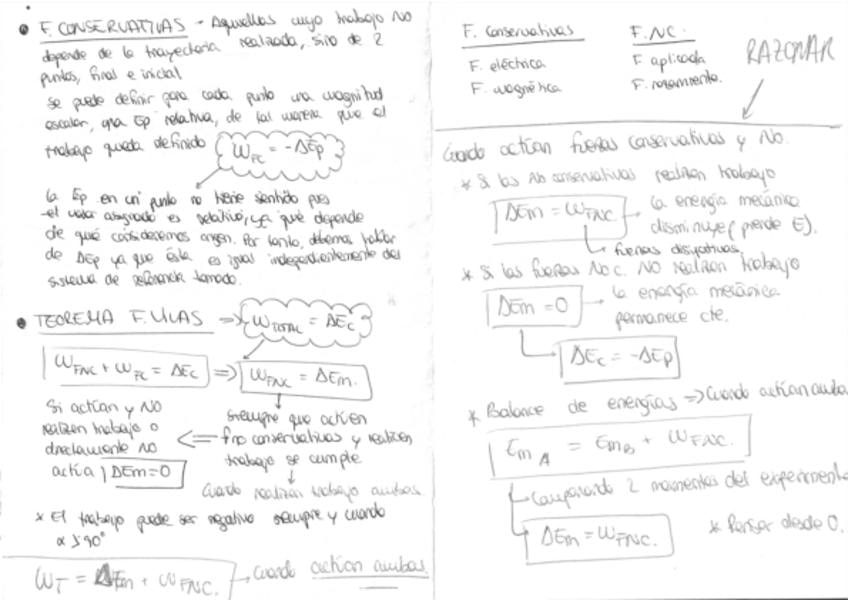 • F. CONSERVATIVAS - Aquellas cuyo trabajo NO
depende de la trayectoria realizada, sino de 2
puntos, final e inicial
se puede definir para cada punto una magnitud
escalar, una Ep relativa, de tal manera que el
trabajo queda definido W_FC = -ΔEp
la Ep en un punto no tiene sentido pues
el valor asignado es relativo, ya que depende
de que consideremos origen. Por tanto, debemos hablar
de ΔEp ya que ésta es igual independientemente del
sistema de referencia tomado.
• TEOREMA F. VIVAS => W_TOTAL = ΔEc
W_FNC + W_FC = ΔEc => W_FNC = ΔEm.
Si actúan y NO
realizan trabajo o
directamente NO
actúa ΔEm=0
siempre que actúen
f no conservativas y realicen
trabajo se cumple
Cuando realizan trabajo ambas.
* El trabajo puede ser negativo siempre y cuando
α > 90°
W_T = + W_FNC. → Cuando actúan ambas.
F. Conservativas
F. eléctrica
F. magnética
F. NC.
F. aplicada
F. rozamiento.
RAZONAR
Cuando actúan fuerzas conservativas y No.
* Si las No conservativas realizan trabajo
ΔEm = W_FNC → la energía mecánica
disminuye (pierde E).
fuerzas disipativas.
* Si las fuerzas No c. NO realizan trabajo
ΔEm = 0 → la energía mecánica
permanece cte.
ΔEc = -ΔEp
* Balance de energías => Cuando actúan ambas
Em_A = Em_B + W_FNC.
Comparando 2 momentos del experimento
ΔEm = W_FNC.
* Pensar desde 0.